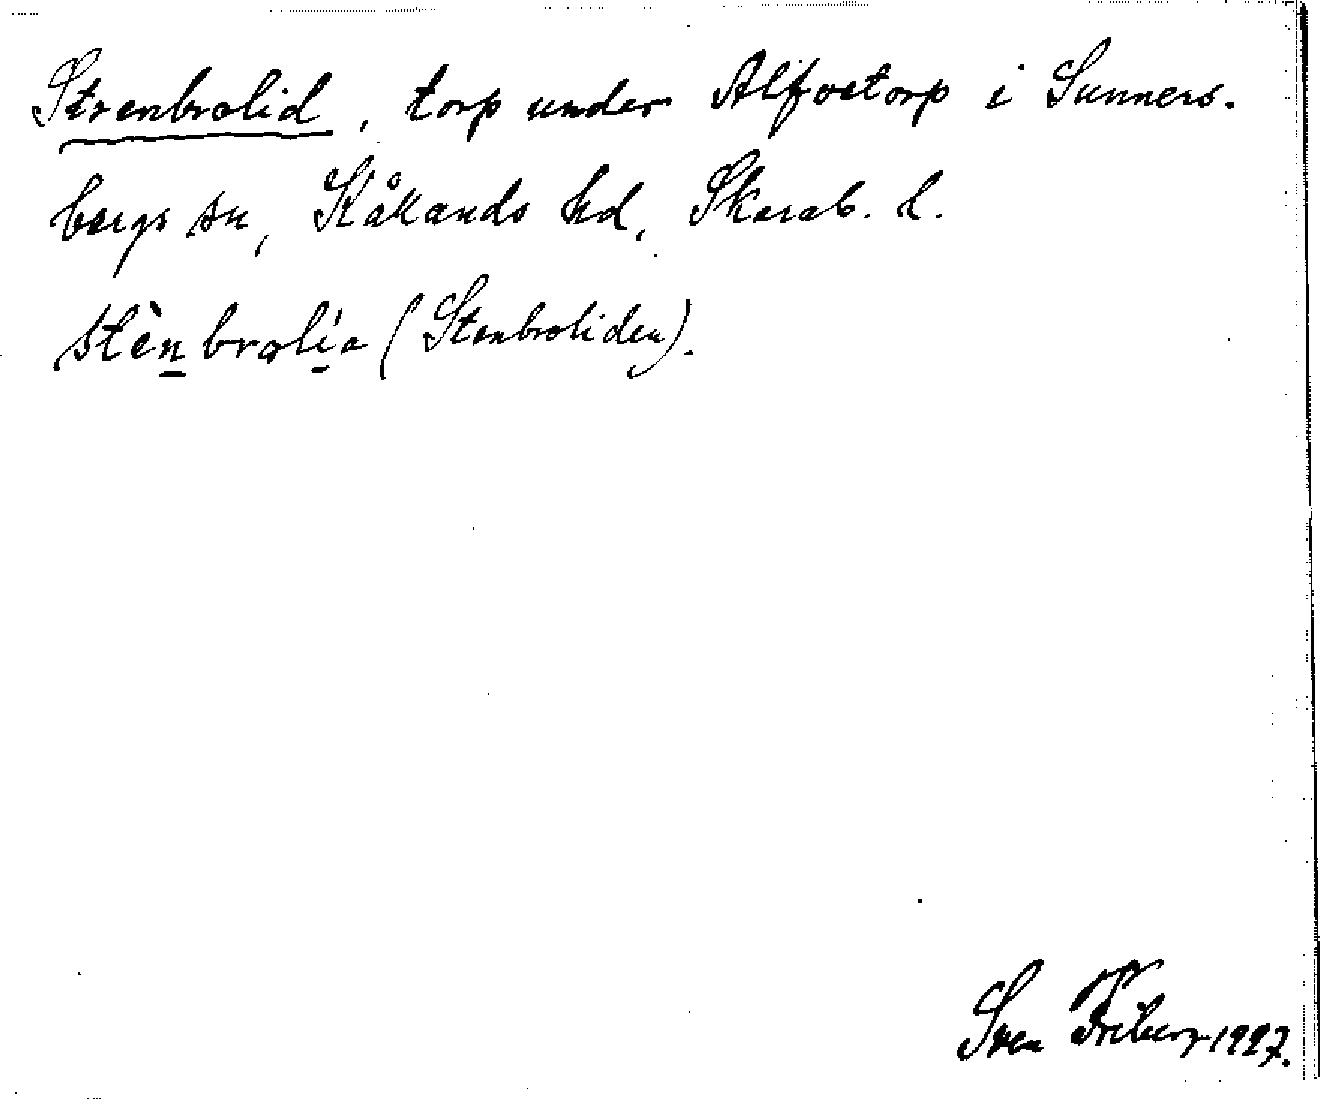 Stenbrolid, torp under Alfvetorp i Sunners-
bergs sn, Kållands hd, Skarab. l.
stènbrolia (Stenbroliden).
Sven Friberg 1927.